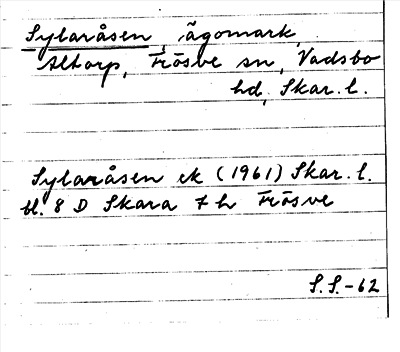 Sylaråsen, ägomark,
Altorp, Frösve sn, Vadsbo
hd, Skar. l.
Sylaråsen ek (1961) Skar. l.
bl. 8 D Skara 7 h Frösve
S.S.-62